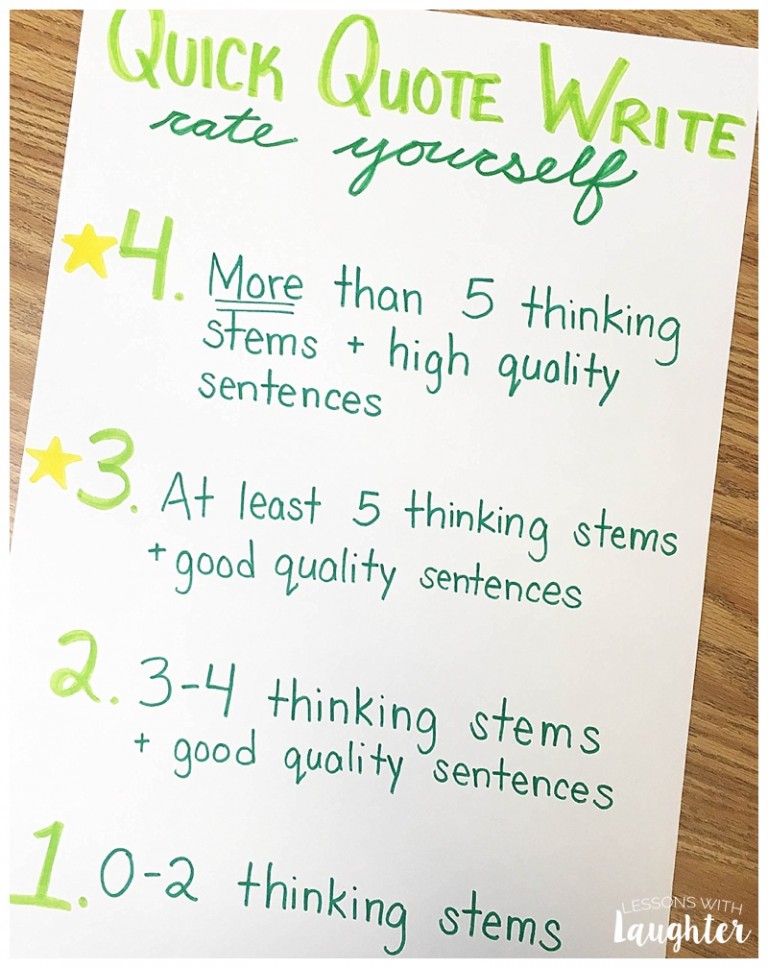 QUICK QUOTE WRITE
rate yourself
4. More than 5 thinking
stems + high quality
sentences
3. At least 5 thinking stems
+ good quality sentences
2. 3-4 thinking stems
+ good quality sentences
1. 0-2 thinking stems
LESSONS WITH
Laughter